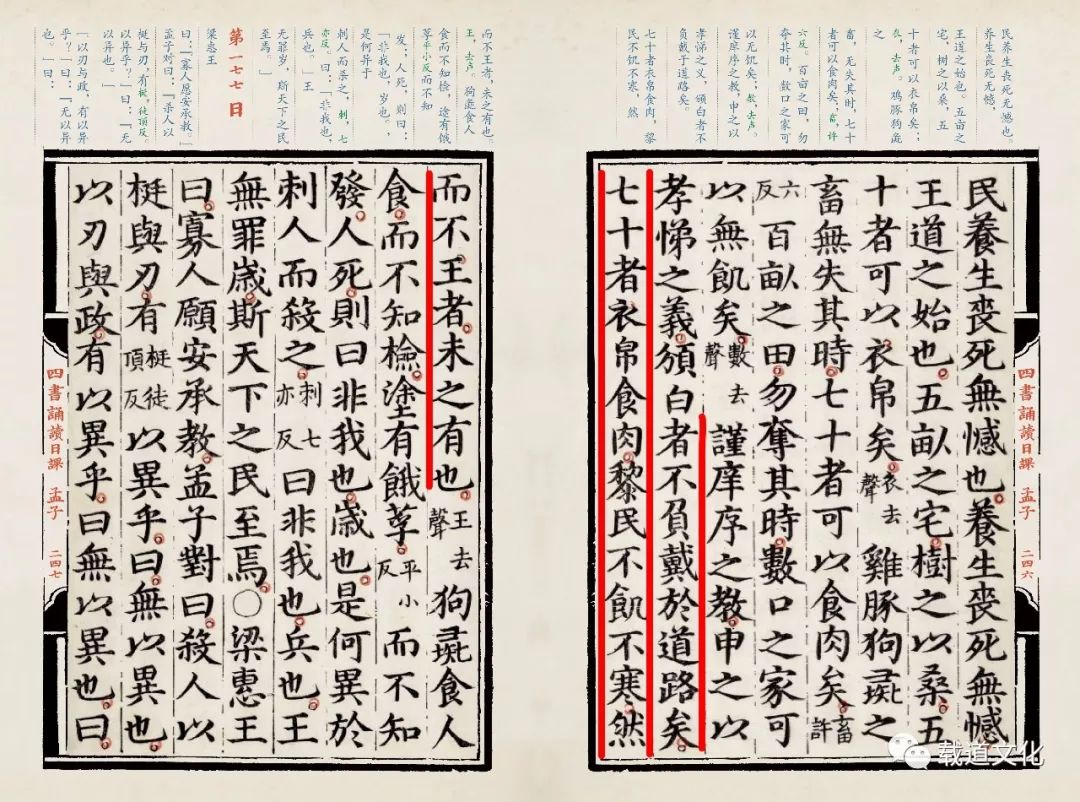 民养生丧死无憾也。
养生丧死无憾,
王道之始也。五亩之
宅,树之以桑,五
十者可以衣帛矣;
衣,去声。鸡豚狗彘
之
畜,无失其时,七十
者可以食肉矣;畜,许
六反。百亩之田,勿
夺其时,数口之家可
以无饥矣;数,去声。
谨庠序之教,申之以
孝悌之义,颁白者不
负戴于道路矣。
七十者衣帛食肉,黎
民不饥不寒,然
民養生喪死無憾也養生喪死無憾
王道之始也五畝之宅樹之以桑五
十者可以衣帛矣衣去聲雞豚狗彘之
畜無失其時七十者可以食肉矣畜許
六反百畝之田勿奪其時數口之家可
以無飢矣數去聲謹庠序之教申之以
孝悌之義頒白者不負戴於道路矣
七十者衣帛食肉黎民不飢不寒然
四書誦讀日課 孟子 二四六
而不王者,未之有也。
王,去声。狗彘食人
食而不知检,途有饿
莩平小反而不知
发;人死,则曰:
「非我也,岁也」,
是何异于
刺人而杀之,刺,七
亦反。曰:「非我也,
兵也。」王
无罪岁,斯天下之民
至焉。」
第一七七日
梁惠王
曰:「寡人愿安承教。」
孟子对曰:「杀人以
梃与刃,有梃,徒顶反
以异乎?」曰:「无
以异也。」
「以刃与政,有以异
乎?」曰:「无以异
也。」曰:
而不王者未之有也王去聲狗彘食人
食而不知檢塗有餓莩平小反而不知
發人死則曰非我也歲也是何異於
刺人而殺之刺七亦反曰非我也兵也王
無罪歲斯天下之民至焉○梁惠王
曰寡人願安承教孟子對曰殺人以
梃與刃有梃徒頂反以異乎曰無以異也
以刃與政有以異乎曰無以異也曰
四書誦讀日課 孟子 二四七
载道文化